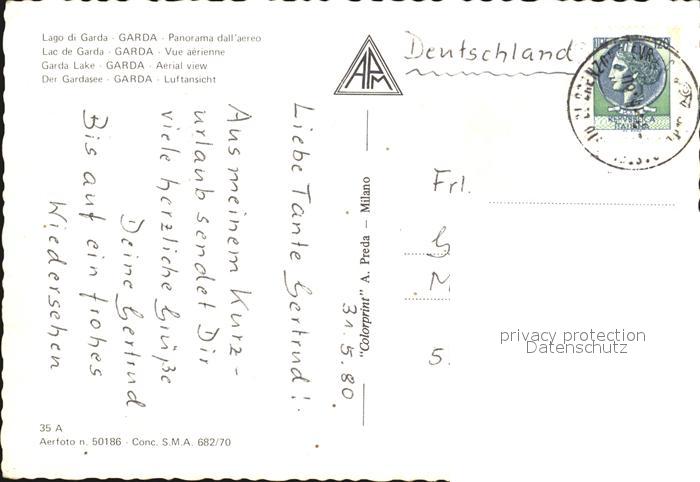 Lago di Garda - GARDA - Panorama dall'aereo
Lac de Garda - GARDA - Vue aérienne
Garda Lake - GARDA - Aerial view
Der Gardasee - GARDA - Luftansicht
APM
Deutschland
120
REPVBBLICA
ITALIANA
31.5.80
Liebe Tante Gertrud!
Aus meinem Kurz-
urlaub sendet Dir
viele herzliche Grüße
Deine Gertrud
Bis auf ein frohes
Wiedersehen
"Colorprint" A. Preda - Milano
Frl.
G
M
5.
privacy protection
Datenschutz
35 A
Aerfoto n. 50186 - Conc. S.M.A. 682/70